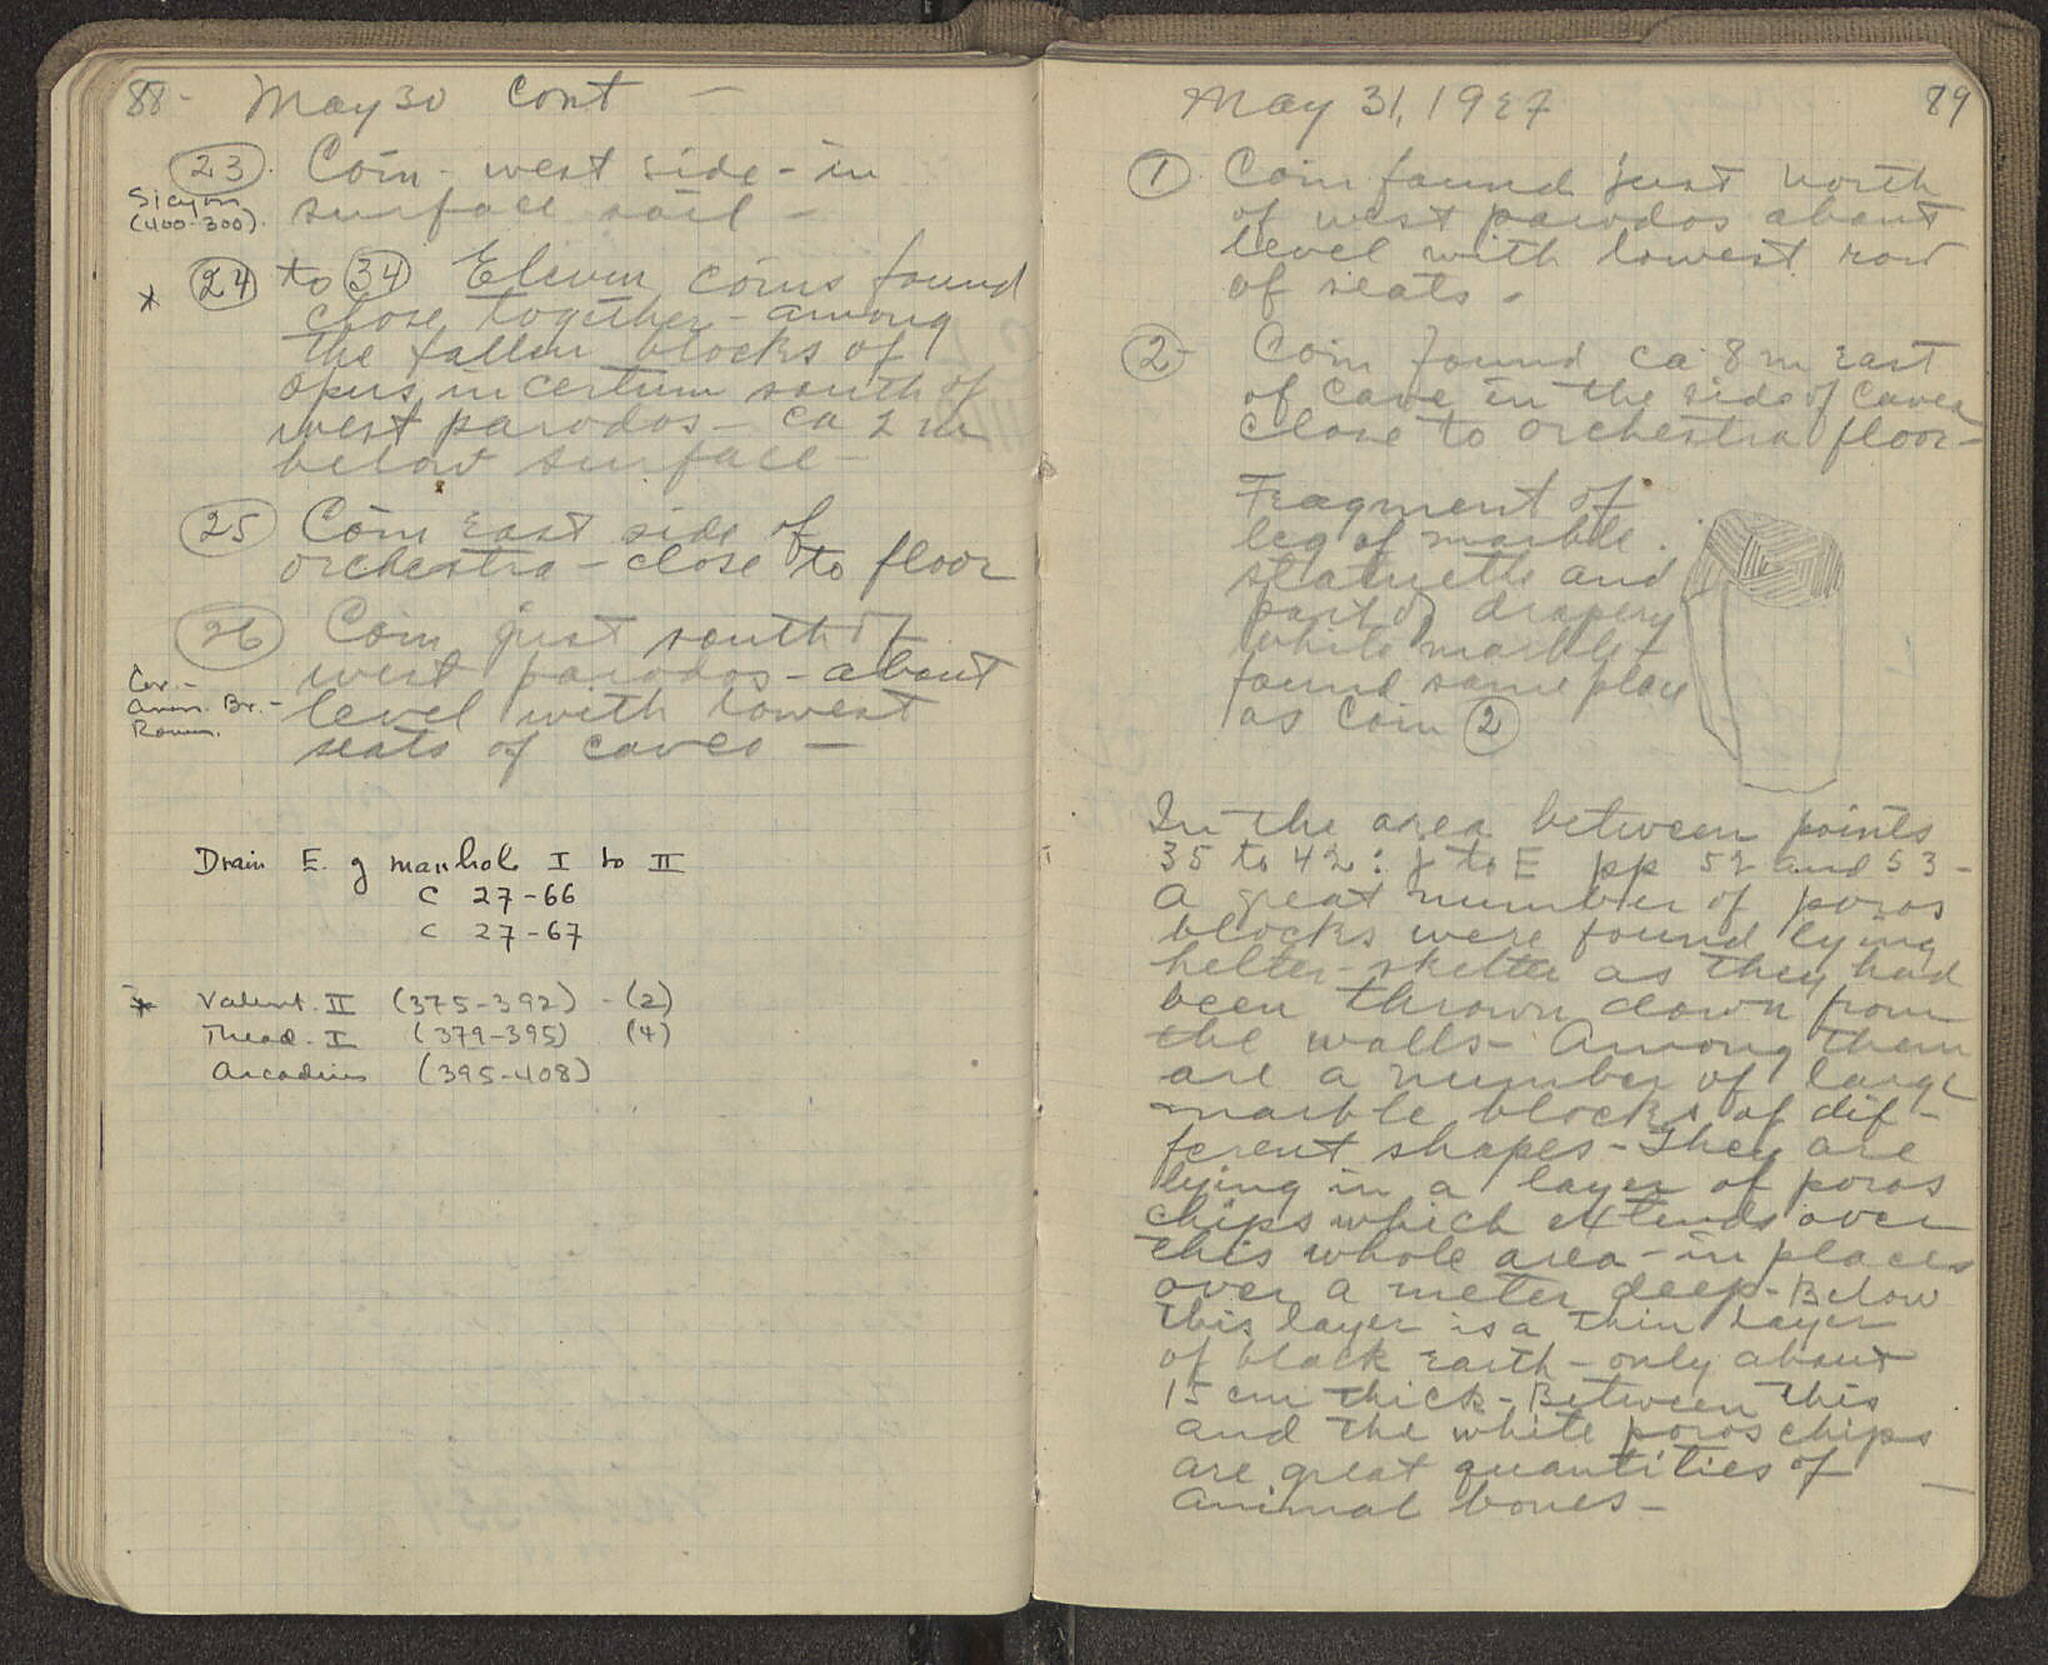 88- May 30 Cont -
(23). Coin - west side - in
Sicyon
(400-300).
surface soil -
* (24) to (34) Eleven coins found
close together - among
the fallen blocks of
opus incertum south of
west parodos - ca 2 m
below surface -
(25) Coin East side of
orchestra - close to floor
(26) Coin just south of
west parodos - about
Cor. -
Anon. Br. -
Roum.
level with lowest
seats of cavea -
Drain E. of manhole I to II
C 27-66
C 27-67
* Valent. II (375-392) - (2)
Theod. I (379-395) (4)
Arcadius (395-408)
May 31, 1927 89
(1) Coin found just north
of west parodos about
level with lowest row
of seats -
(2) Coin found ca 8 m East
of Cave in the side of Cavea
close to orchestra floor -
Fragment of
leg of marble
statuette and
part of drapery
white marble -
found same place
as Coin (2)
In the area between points
35 to 42 : to E pp 52 and 53 -
A great number of poros
blocks were found lying
helter-skelter as they had
been thrown down from
the walls - Among them
are a number of large
marble blocks of dif-
ferent shapes - They are
lying in a layer of poros
chips which extends over
this whole area - in places
over a meter deep - Below
this layer is a thin layer
of black earth - only about
15 cm thick - Between this
and the white poros chips
are great quantities of
animal bones -